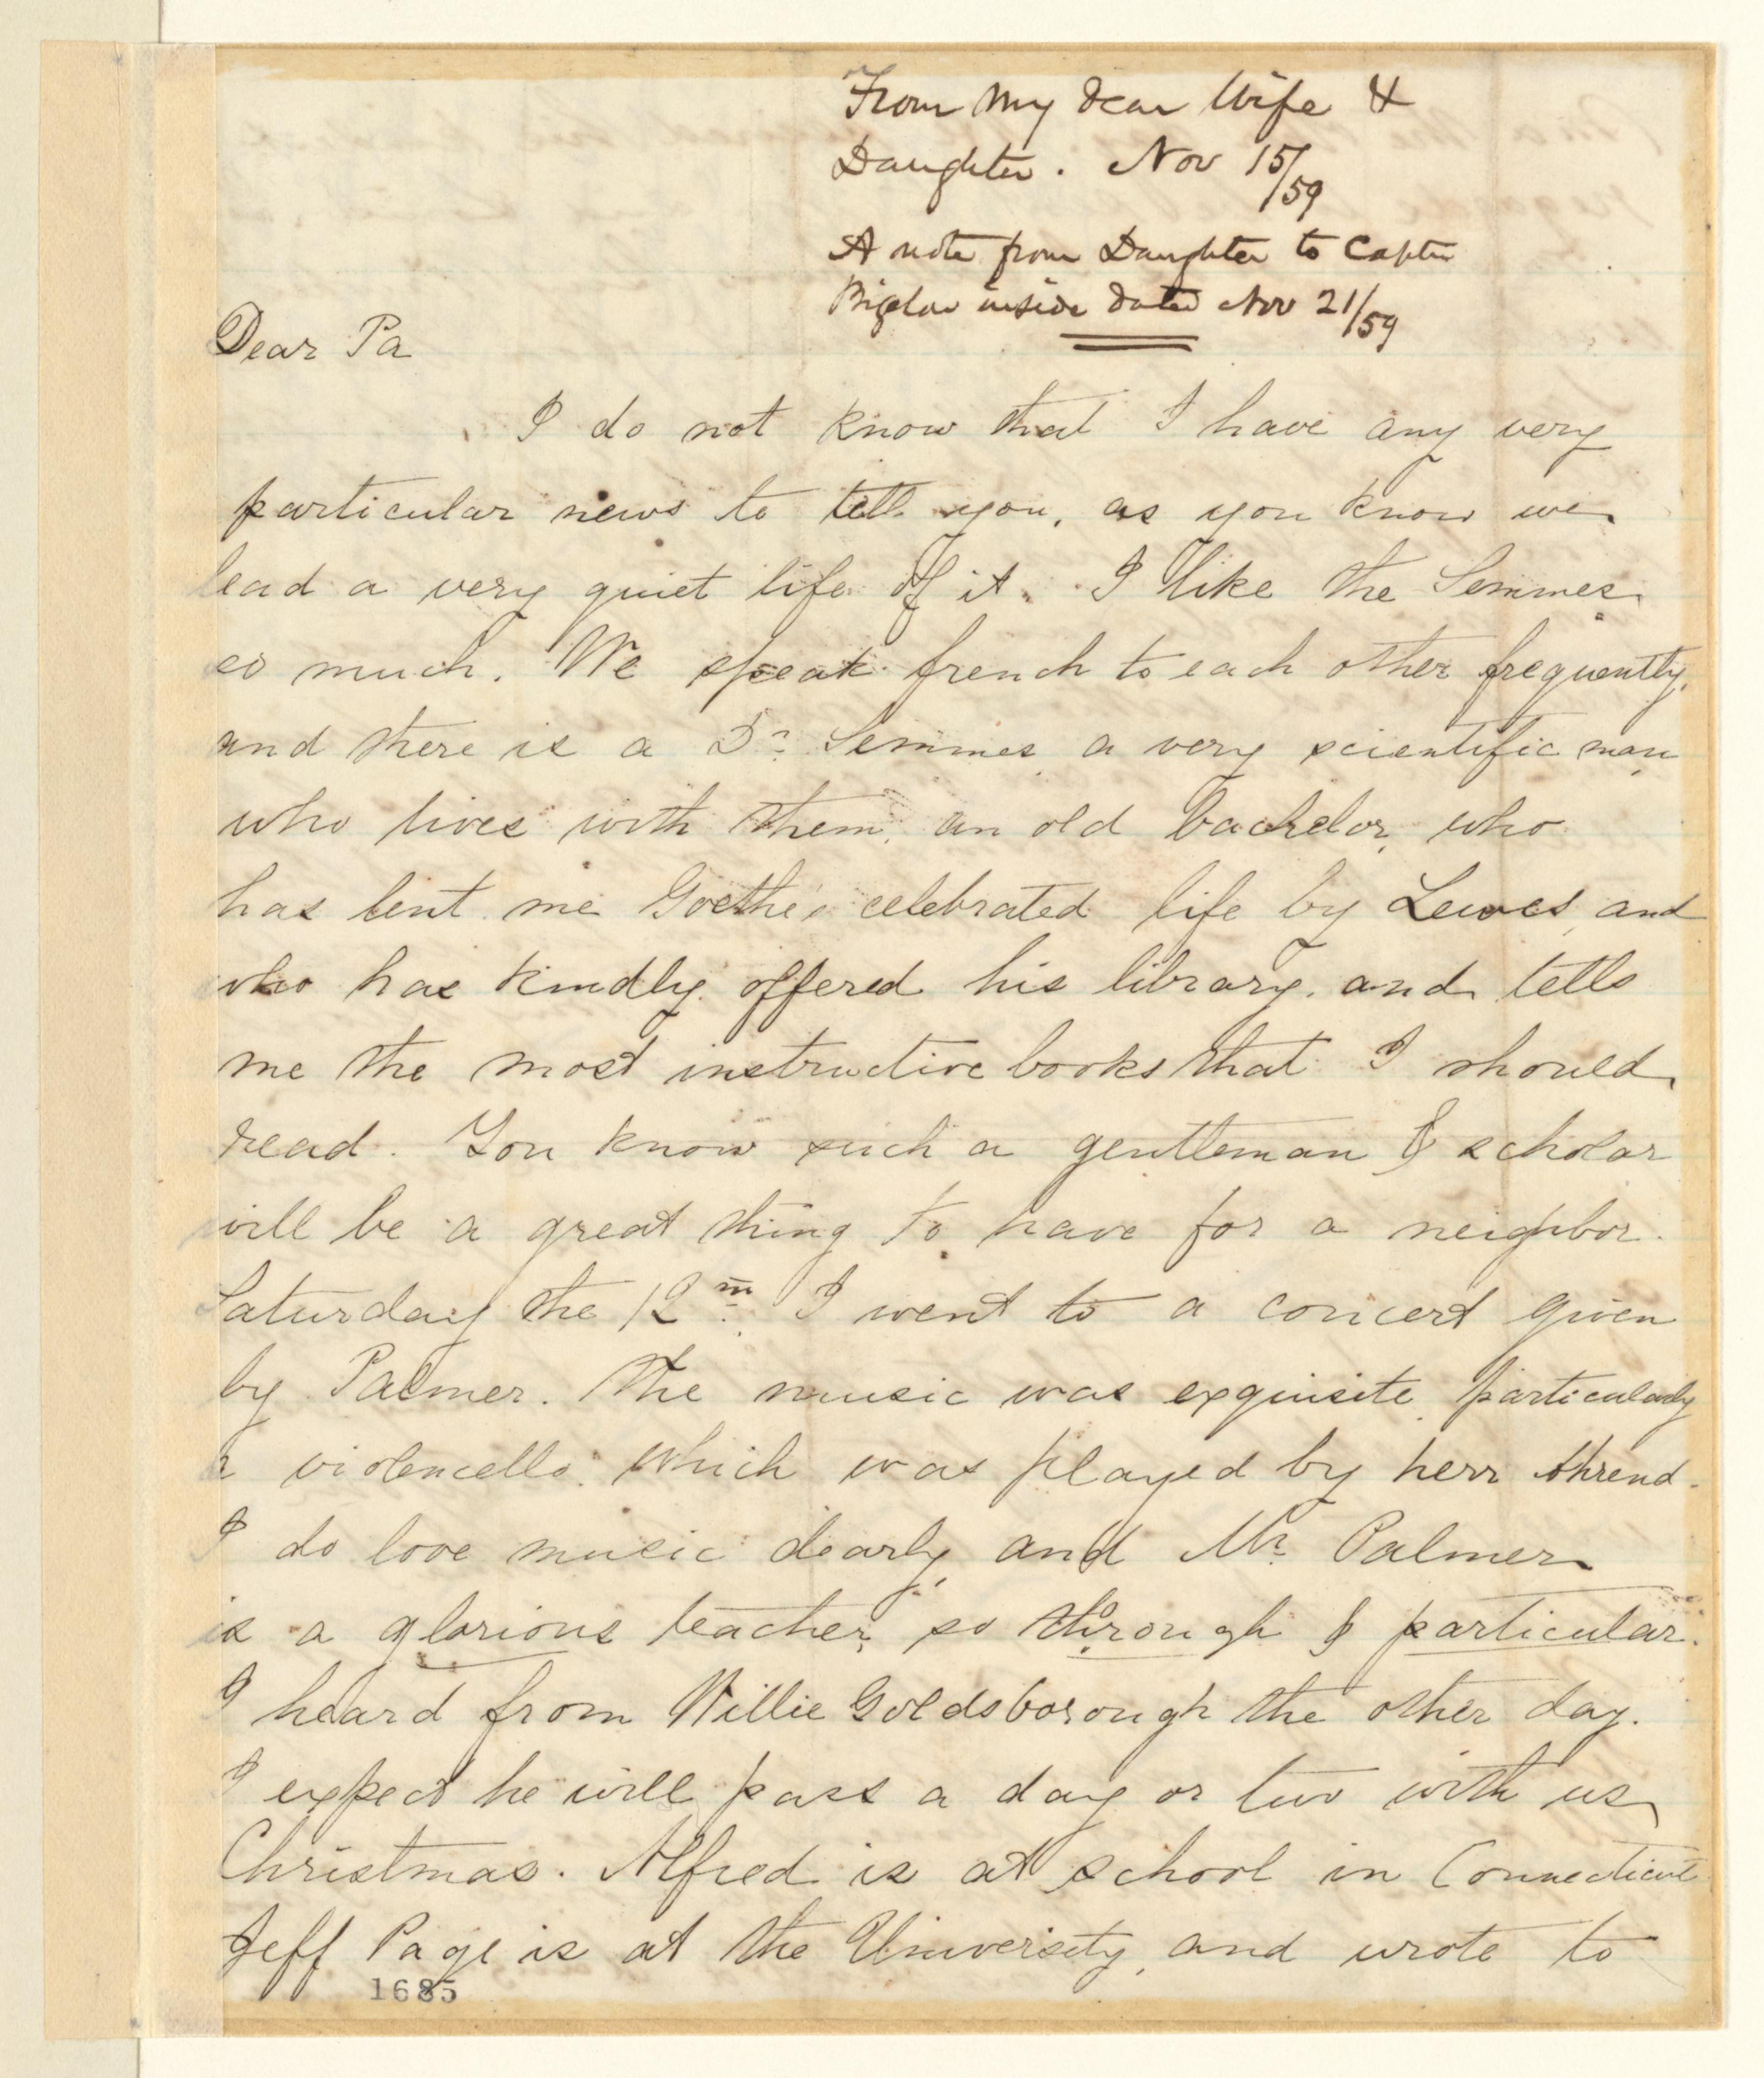 From my dear Wife &
Daughter. Nov 15/59
A note from Daughter to Captn
Bigelow inside dated Nov 21/59
Dear Pa
I do not know that I have any very
particular news to tell you, as you know we
lead a very quiet life of it. I like the Semmes
so much. We speak french to each other frequently,
and there is a Dr. Semmes, a very scientific man
who lives with them, an old bachelor, who
has lent me Goethe's celebrated life by Lewes, and
who has kindly offered his library, and tells
me the most instructive books that I should
read. You know such a gentleman & scholar
will be a great thing to have for a neighbor.
Saturday the 12th. I went to a concert given
by Palmer. The music was exquisite, particularly
a violencello which was played by herr
I do love music dearly, and Mr. Palmer
is a glorious teacher, so through & particular.
I heard from Willie Goldsborough the other day.
I expect he will pass a day or two with us
Christmas. Alfred is at school in Connecticut
Jeff Page is at the University, and wrote to
1685